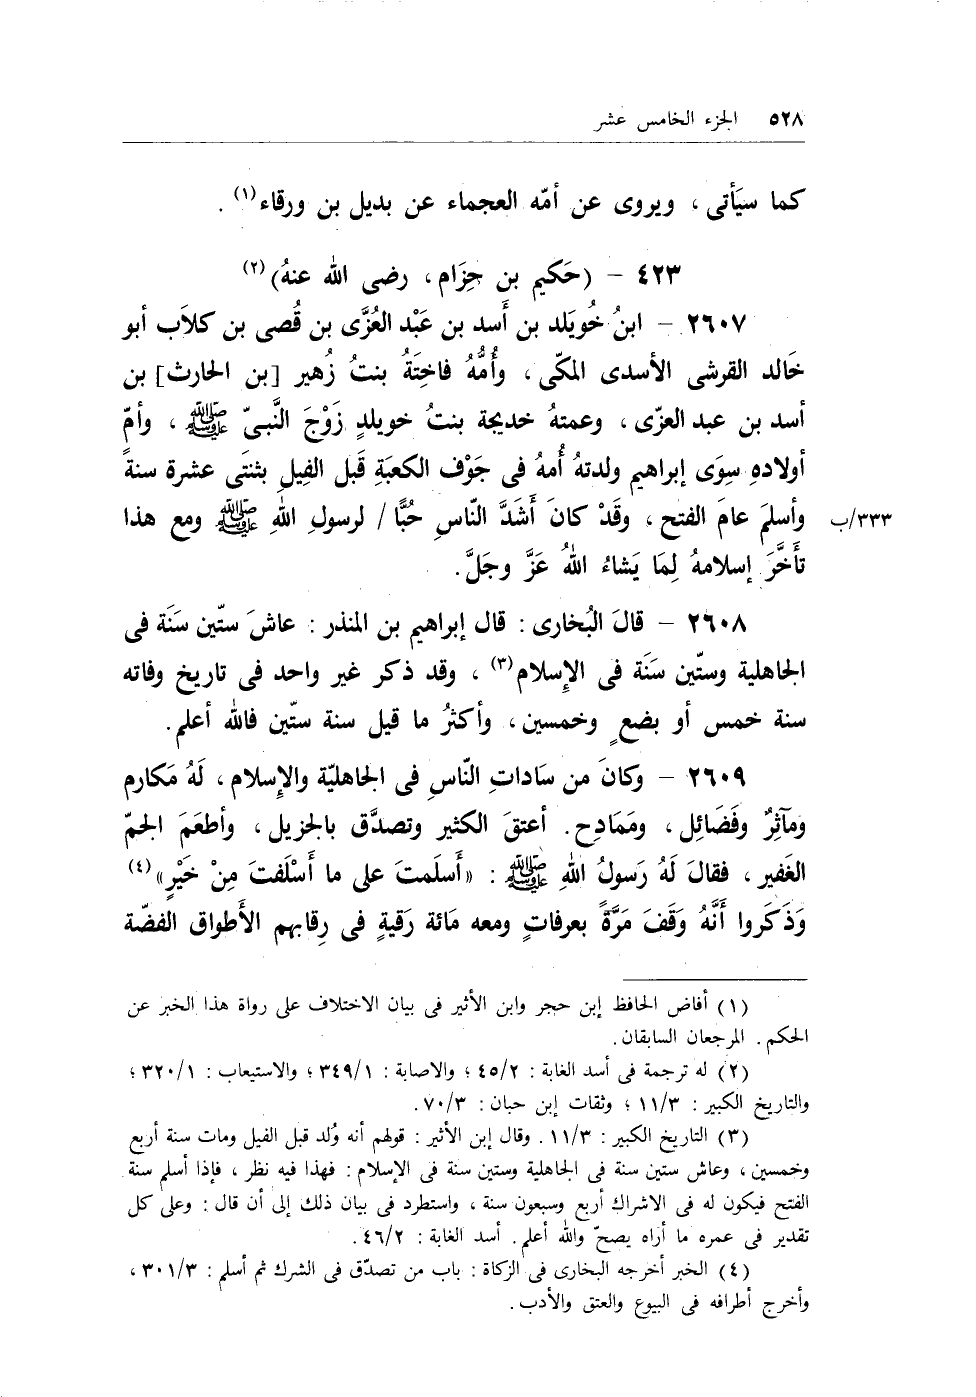 ٥٢٨ الجزء الخامس عشر
كما سيَأتى ، ويروى عن أمّه العجماء عن بديل بن ورقاء(١) .
٤٢٣ – (حَكيم بن حِزَام، رضى الله عنهُ)(٢)
٢٦٠٧ – ابنُ خُويَلد بن أَسد بن عَبْد العُزَّى بن قُصى بن كلاَب أبو
خَالد القرشى الأسدى المكّى ، وأُمُّهُ فاخِتَةُ بنتُ زُهير [بن الحارث] بن
أسد بن عبد العزّى ، وعمتهُ خديجة بنتُ خويلدٍ زَوْجَ النَّبىّ ﷺ ، وأمّ
أولادهِ سِوَى إبراهيم ولدتهُ أُمهُ فى جَوْف الكعبَةِ قَبل الفِيلِ بثنتَى عشرة سنةً
وأسلمَ عامَ الفتح، وقَدْ كانَ أَشَدَّ النّاسِ حُبًّا / لرسولِ اللهِ ﷺ ومع هذا ٣٣٣/ب
تأَخَّرَ إسلامهُ لِمَا يَشاءُ اللهُ عَزَّ وجَلَّ.
٢٦٠٨ – قالَ البُخارى : قال إبراهيم بن المنذر : عاشَ ستّين سَنَة فى
الجاهلية وستّين سَنَة فى الإِسلام(٣) ، وقد ذكر غير واحد فى تاريخ وفاته
سنة خمس أو بضعٍ وخمسين، وأكثرُ ما قيل سنة ستّين فالله أعلم.
٢٦٠٩ – وكانَ من سَاداتِ النّاسِ فى الجاهليّة والإسلام، لَهُ مَكارم
ومآثِرٌ وفَضَائِل، ومَمَادِح. أعتقَ الكثير وتصدَّق بالجزيل، وأطعَمَ الجمّ
الغَفير، فقالَ لَهُ رَسولُ اللهِ ﷺ : «أَسلَمتَ على ما أَسْلَفتَ مِنْ خَيْرٍ»(٤)
وَذَكَروا أَنَّهُ وَقَفَ مَرَّةً بعرفاتٍ ومعه مَائة رَقيةٍ فى رِقابهم الأَطواق الفضّة
(١) أفاض الحافظ إبن حجر وابن الأثير فى بيان الاختلاف على رواة هذا الخبر عن
الحكم . المرجعان السابقان.
(٢) له ترجمة فى أسد الغابة : ٤٥/٢ ؛ والاصابة : ٣٤٩/١ ؛ والاستيعاب : ٣٢٠/١ ؛
والتاريخ الكبير : ١١/٣ ؛ وثقات إبن حبان: ٧٠/٣.
(٣) التاريخ الكبير : ١١/٣. وقال إبن الأثير : قولهم أنه وُلد قبل الفيل ومات سنة أربع
وخمسين ، وعاش ستين سنة فى الجاهلية وستين سنة فى الإسلام : فهذا فيه نظر ، فإذا أسلم سنة
الفتح فيكون له فى الاشراك أربع وسبعون سنة ، واستطرد فى بيان ذلك إلى أن قال : وعلى كل
تقدير فى عمره ما أراه يصحّ والله أعلم. أسد الغابة : ٤٦/٢.
(٤) الخبر أخرجه البخارى فى الزكاة : باب من تصدّق فى الشرك ثم أسلم : ٣٠١/٣ ،
وأخرج أطرافه فى البيوع والعتق والأدب.